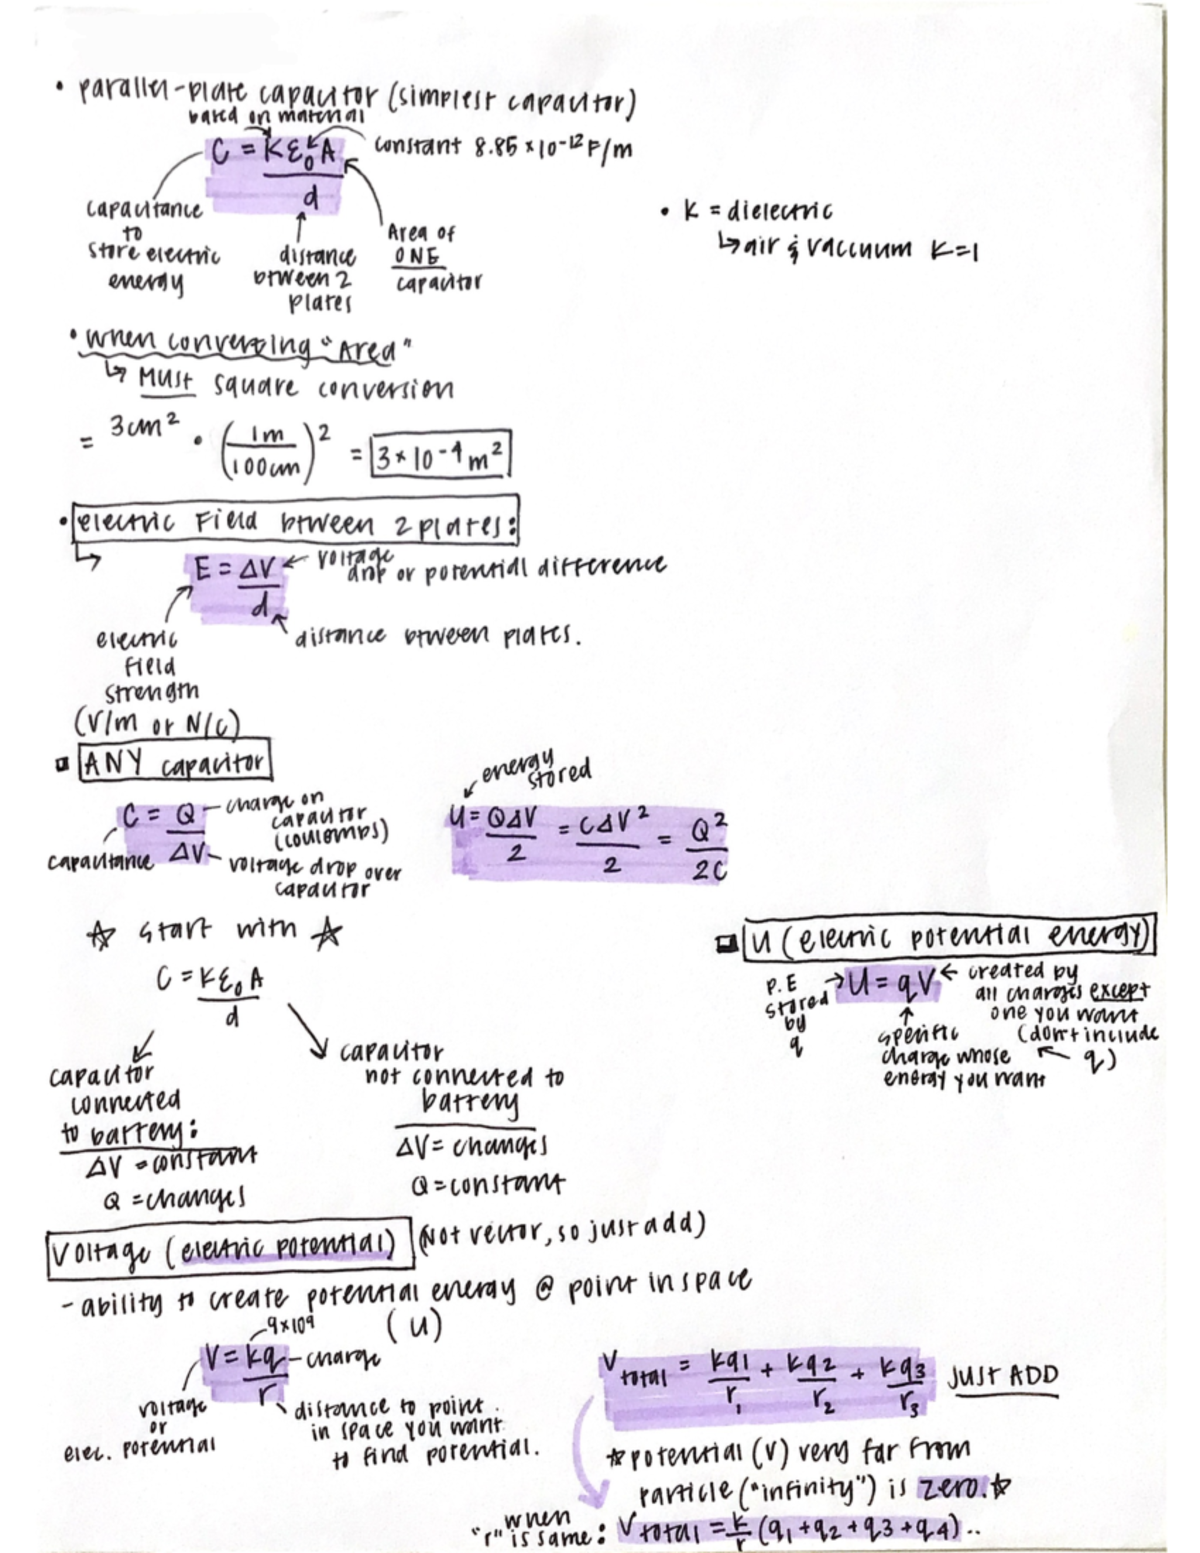 • parallel-plate capacitor (simplest capacitor)
based on material
C = Kε₀A / d
constant 8.85 × 10⁻¹² F/m
capacitance
to
store electric
energy
distance
between 2
plates
Area of
ONE
capacitor
• K = dielectric
↳ air & vaccuum K=1
• when converting "Area"
↳ MUST square conversion
= 3cm² • (1m / 100cm)² = 3 × 10⁻⁴ m²
• electric Field between 2 plates:
↳ E = ΔV / d
← voltage
drop or potentiall difference
distance between plates.
electric
field
strength
(V/m or N/C)
ANY capacitor
C = Q / ΔV
charge on
capacitor
(coulombs)
capacitance
voltage drop over
capacitor
energy
stored
U = QΔV / 2 = CΔV² / 2 = Q² / 2C
☆ start with ☆
C = Kε₀A / d
capacitor
connected
to battery:
ΔV = constant
Q = changes
capacitor
not connected to
battery
ΔV = changes
Q = constant
U (electric potential energy)
P.E
stored
by
q
→ U = qV ←
created by
all charges except
one you want
(don't include
q)
specific
charge whose
energy you want
Voltage (electric potential) (Not vector, so just add)
- ability to create potential energy @ point in space
(U)
9×10⁹
V = kq / r
charge
voltage
or
elec. potential
distance to point
in space you want
to find potential.
V total = kq1 / r₁ + kq2 / r₂ + kq3 / r₃ JUST ADD
☆ potential (V) very far from
particle ("infinity") is zero. ☆
when
"r" is same: V total = k/r (q1 + q2 + q3 + q4) ..